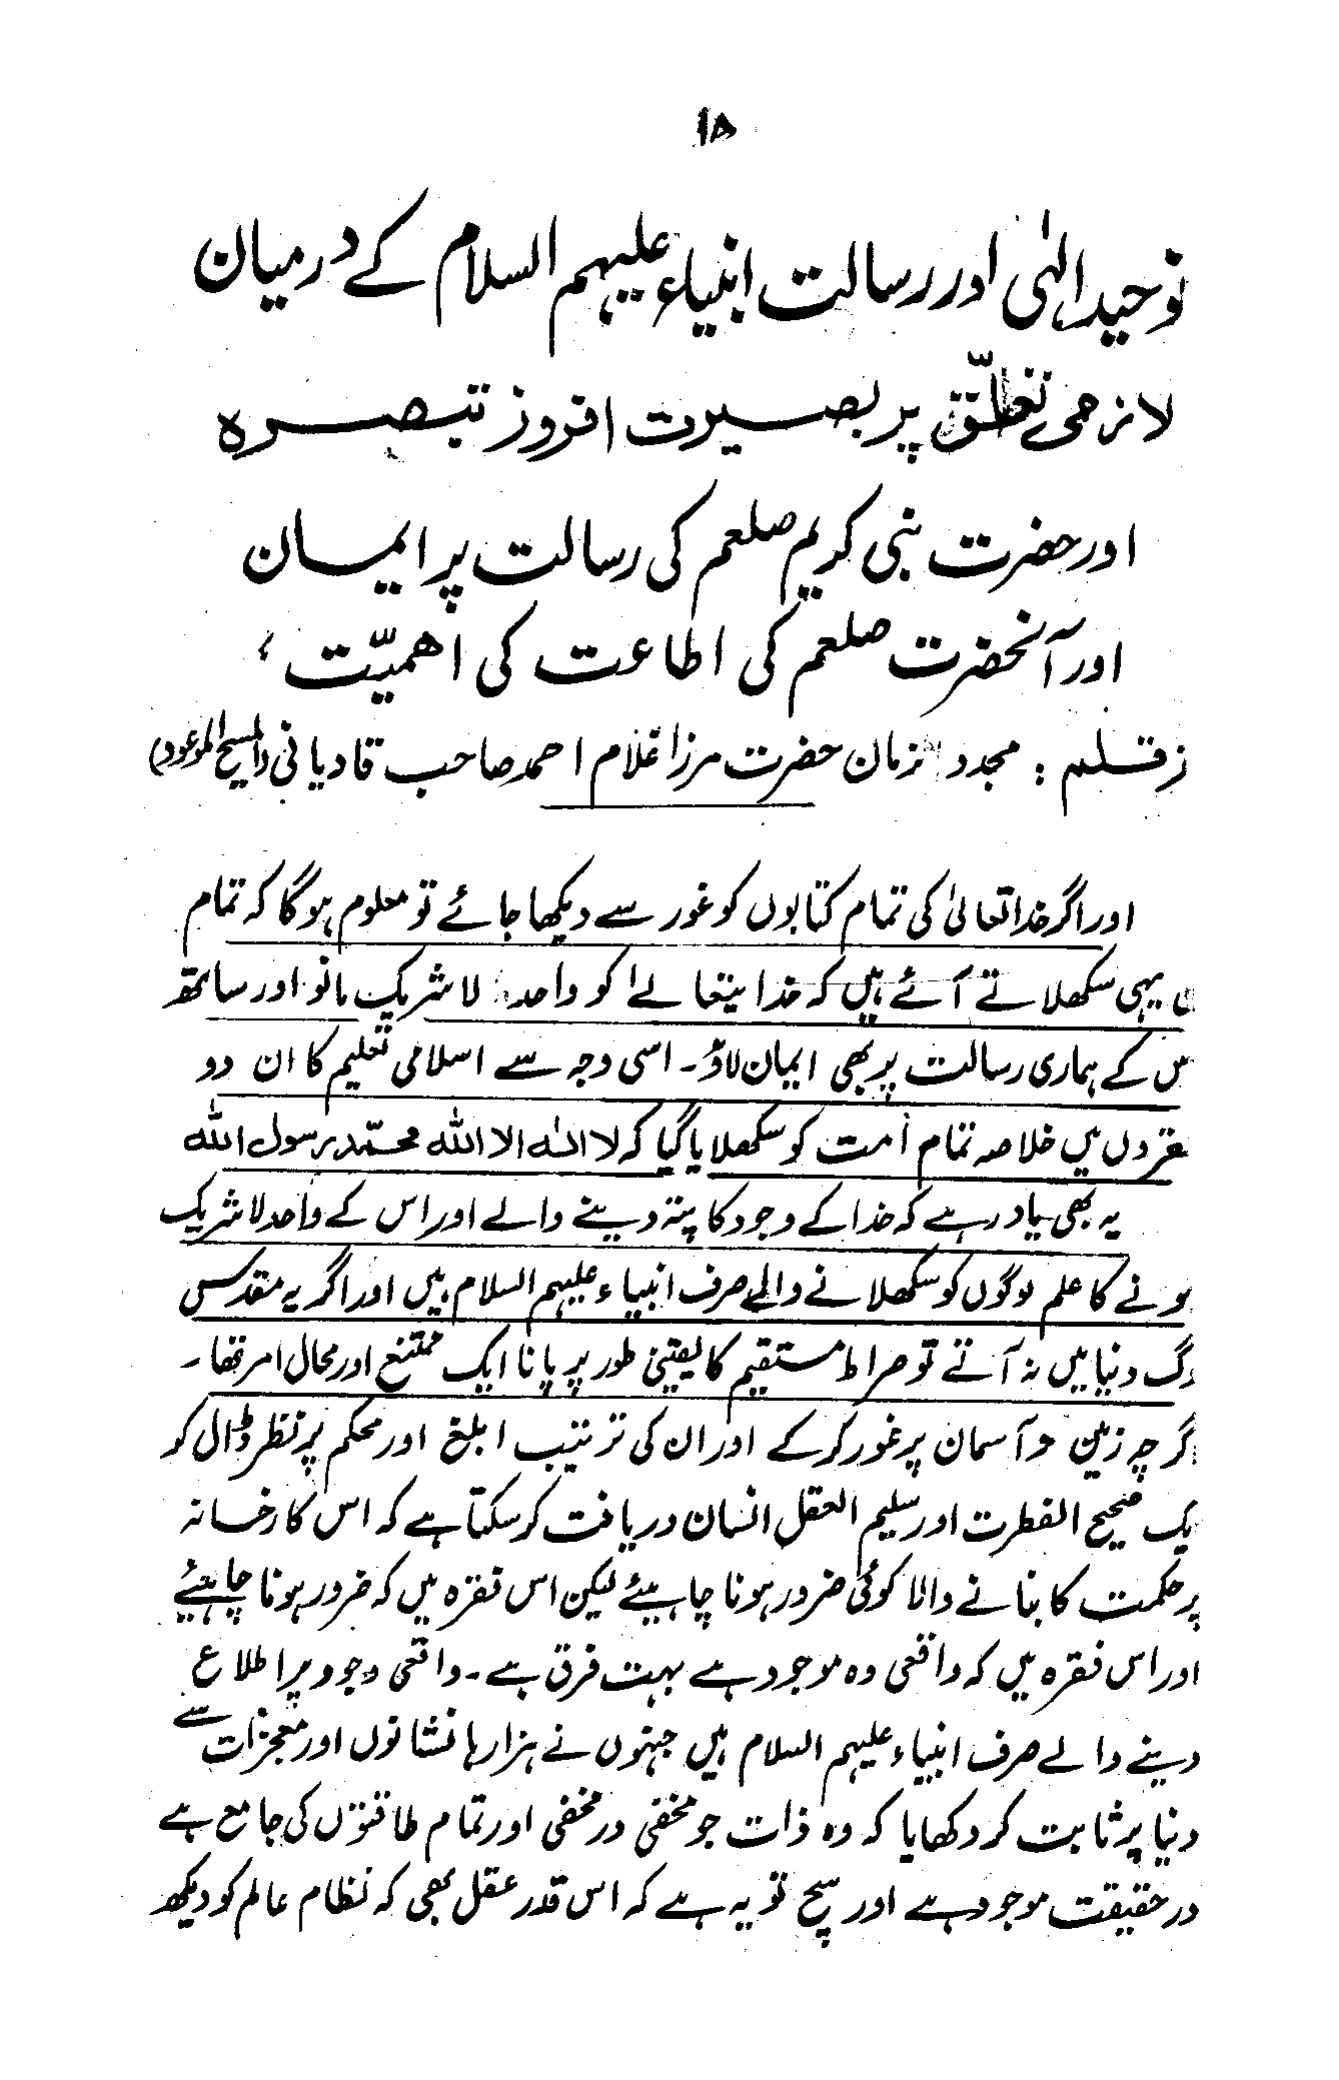 ۱۵
توحید الہٰی اور رسالت انبیاء علیہم السلام کے درمیان
لازمی تعلّق پر بصیرت افروز تبصرہ
اور حضرت نبی کریم صلعم کی رسالت پر ایمان
اور آنحضرت صلعم کی اطاعت کی اھمیّت ؛
زقلم : مجدد زمان حضرت مرزا غلام احمد صاحب قادیانی (المسیح الموعود)
اور اگر خدا تعالیٰ کی تمام کتابوں کو غور سے دیکھا جائے تو معلوم ہوگا کہ تمام
یہی سکھلاتے آئے ہیں کہ خدا یتعالےٰ کو واحد لا شریک مانو اور ساتھ
س کے ہماری رسالت پر بھی ایمان لاؤ۔ اسی وجہ سے اسلامی تعلیم کا ان دو
قروں میں خلاصہ تمام اُمت کو سکھلایا گیا کہ لا الٰہ الا اللّٰہ محمّد رسول اللّٰہ
یہ بھی یاد رہے کہ خدا کے وجود کا پتہ دینے والے اور اس کے واحد لا شریک
ہونے کا علم لوگوں کو سکھلانے والے صرف انبیاء علیہم السلام ہیں اور اگر یہ مقدس
گ دنیا میں نہ آتے تو صراط مستقیم کا یقینی طور پر پانا ایک ممتنع اور محال امر تھا۔
گرچہ زمین و آسمان پر غور کر کے اور ان کی ترتیب ابلغ اور محکم پر نظر ڈال کر
یک صحیح الفطرت اور سلیم العقل انسان دریافت کر سکتا ہے کہ اس کارخانہ
پر حکمت کا بنانے والا کوئی ضرور ہونا چاہیئے لیکن اس فقرہ میں کہ ضرور ہونا چاہیئے
اور اس فقرہ میں کہ واقعی وہ موجود ہے بہت فرق ہے۔ واقعی وجود پر اطلاع
دینے والے صرف انبیاء علیہم السلام ہیں جنہوں نے ہزارہا نشانوں اور معجزات سے
دنیا پر ثابت کر دکھایا کہ وہ ذات جو مخفی در مخفی اور تمام طاقتوں کی جامع ہے
در حقیقت موجود ہے اور سچ تو یہ ہے کہ اس قدر عقل بھی کہ نظام عالم کو دیکھ